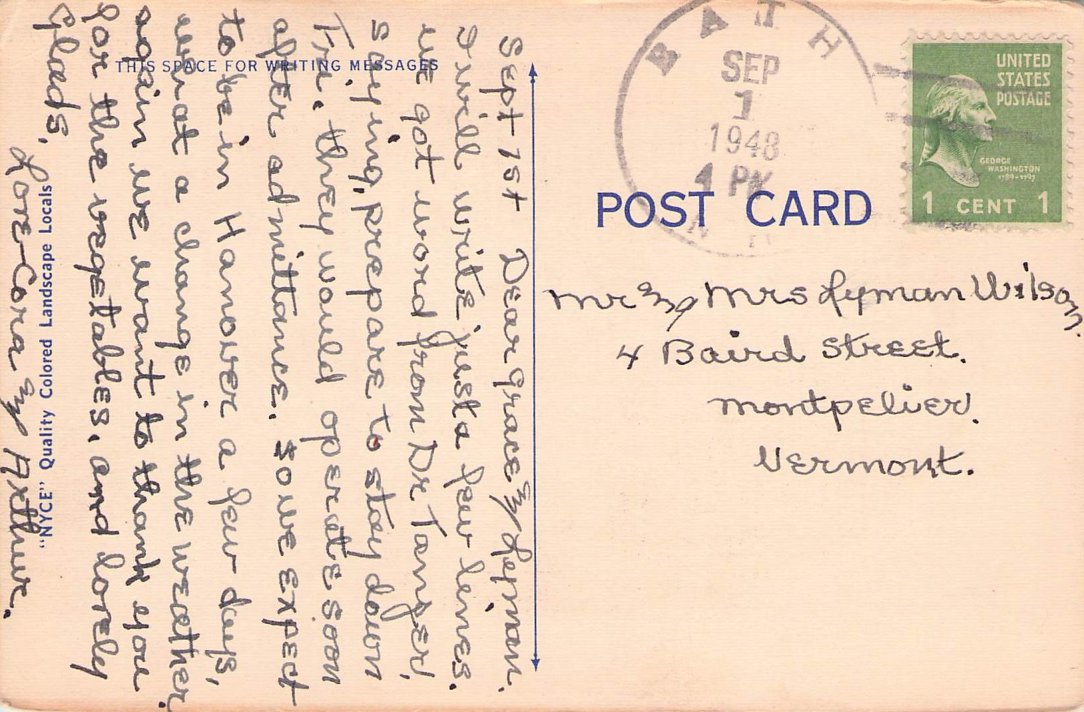 THIS SPACE FOR WRITING MESSAGES
Sept 1st Dear Grace & Lyman.
I will write just a few lines.
we got word from Dr Tanger,
saying, prepare to stay down
Fri. they would operate soon
after admittance. so we expect
to be in Hanover a few days,
what a change in the weather.
again we want to thank you
for the vegetables, and lovely
glads,
Love-Cora & Arthur.
"NYCE" Quality Colored Landscape Locals
BATH
SEP
1
1948
4 PM
N
UNITED
STATES
POSTAGE
GEORGE
WASHINGTON
1789-1797
1 CENT 1
POST CARD
Mr & Mrs Lyman Wilson,
4 Baird Street.
Montpelier,
Vermont.